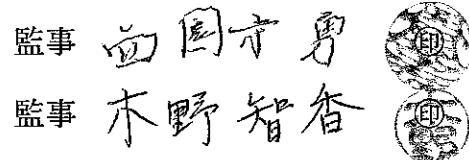 監事 西園寺 勇 ㊞
監事 木野 智香 ㊞